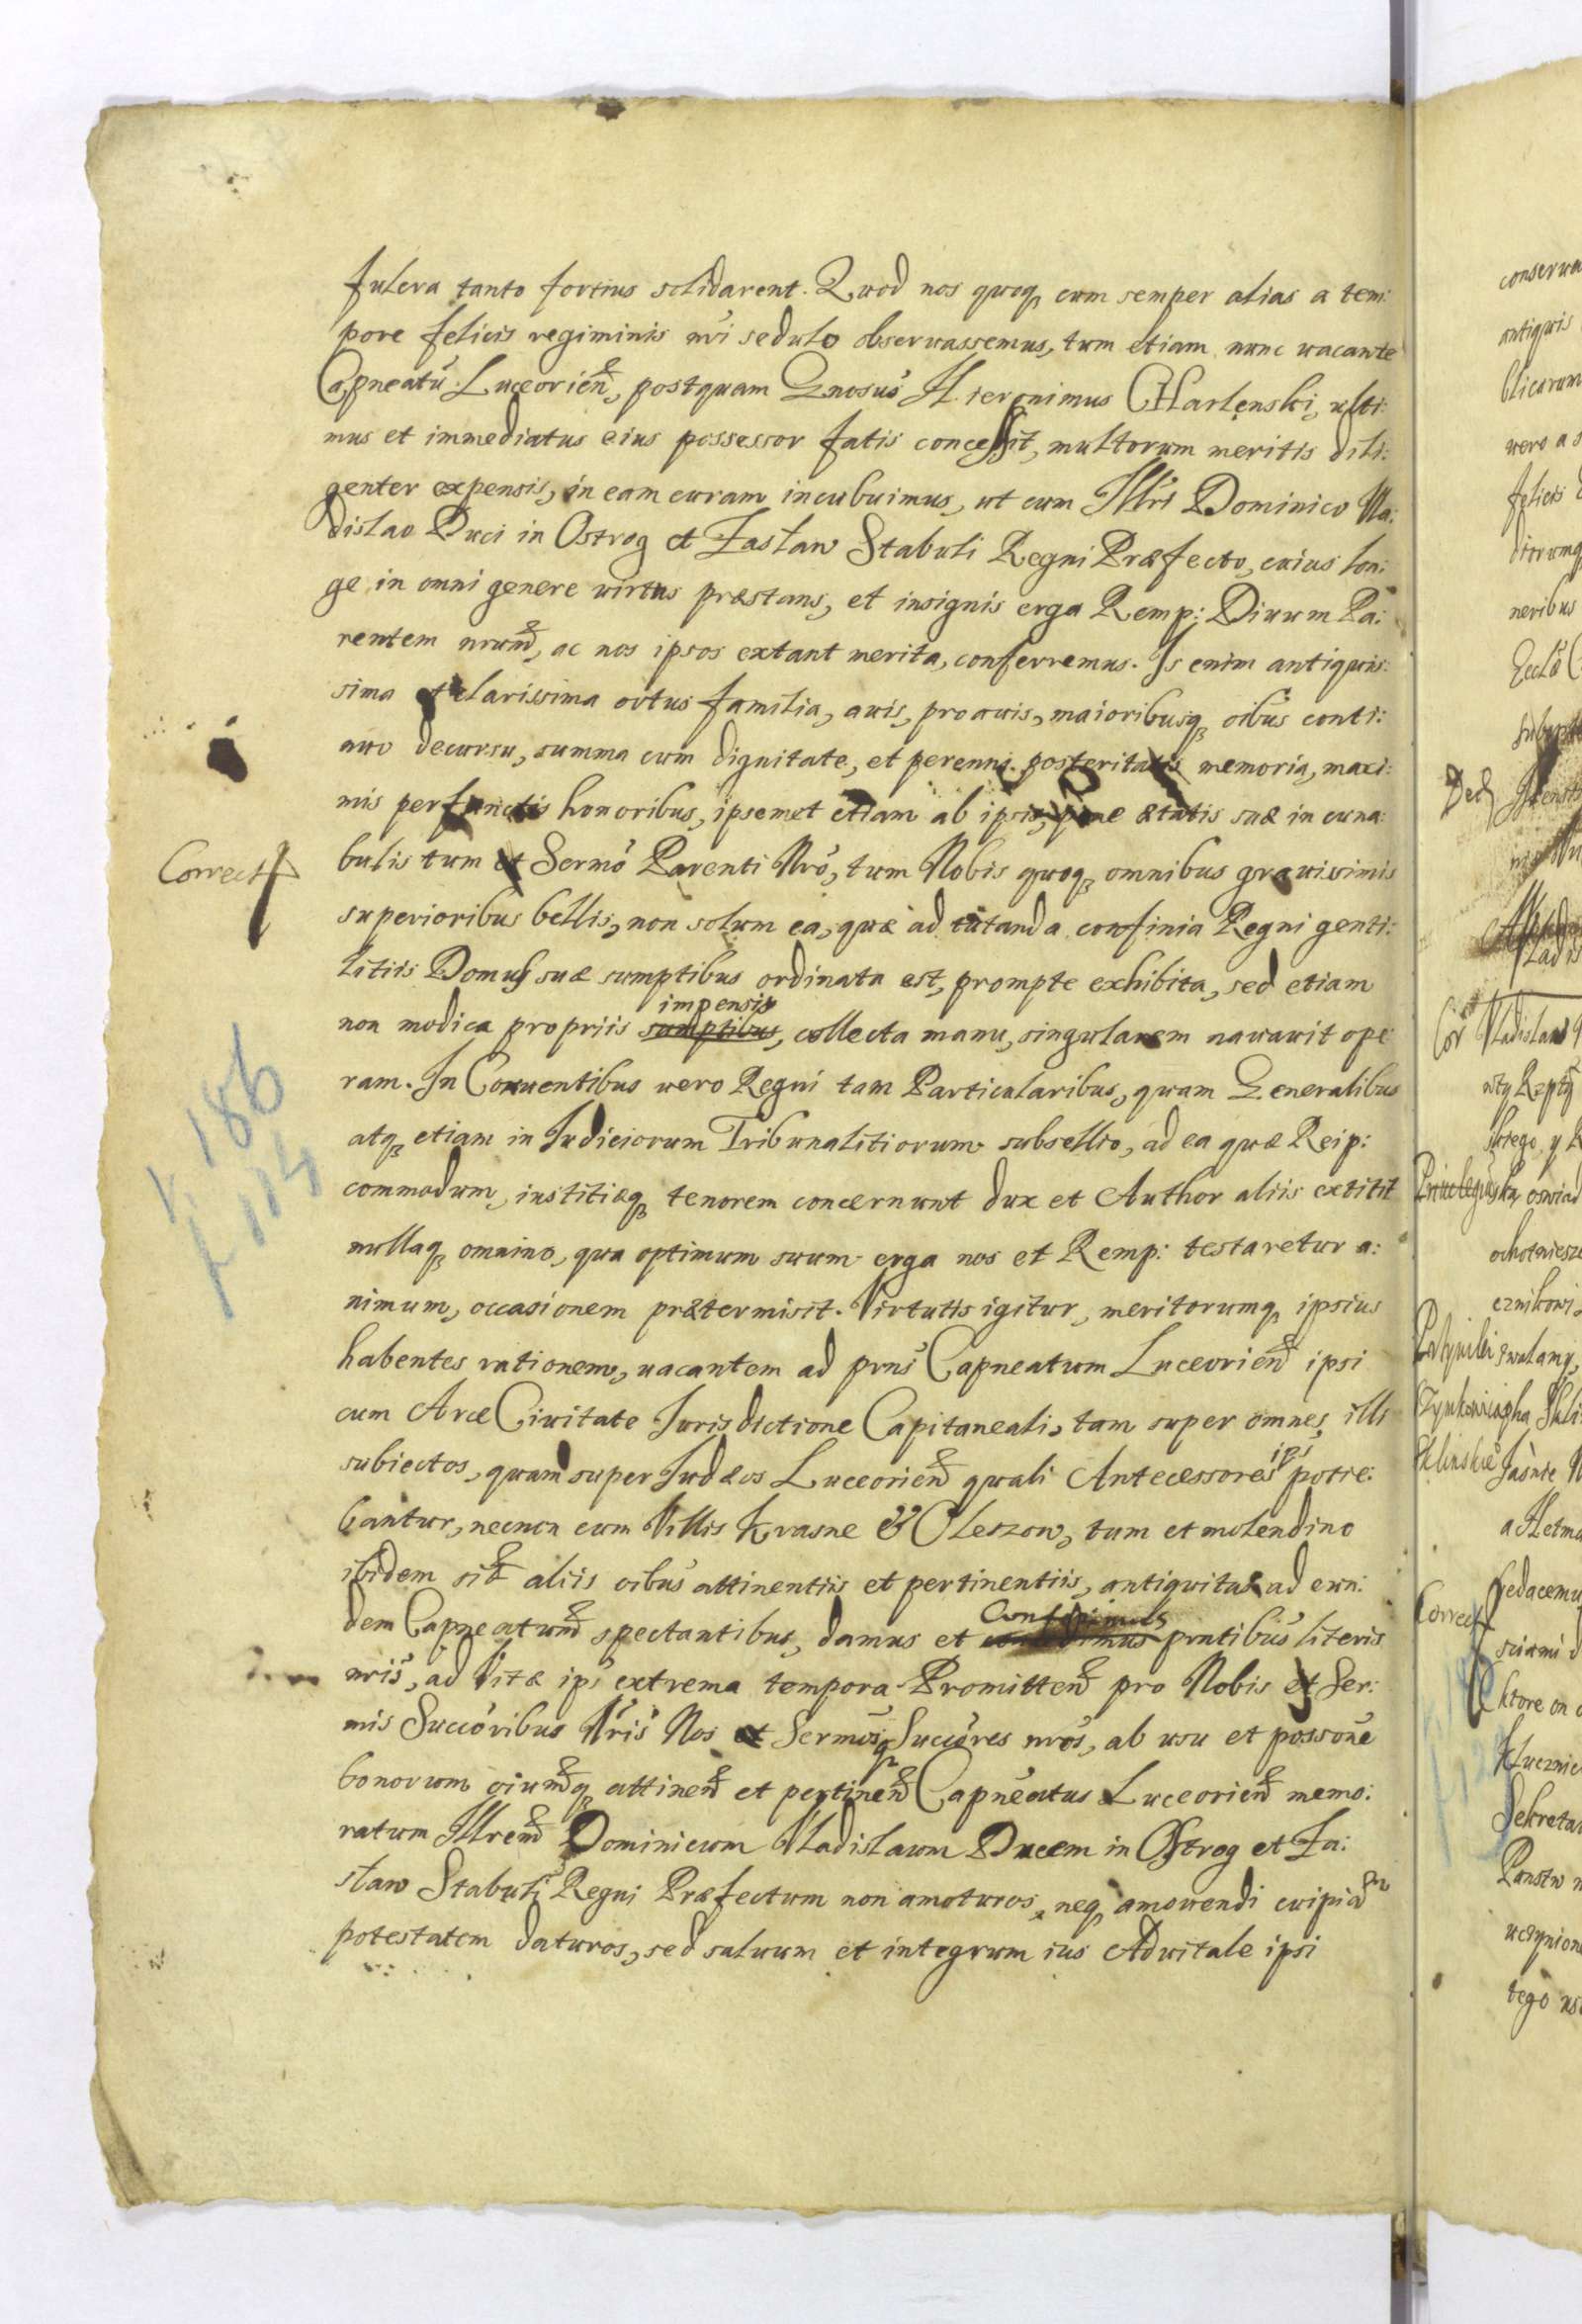 fulcra tanto fortius solidarent. Quod nos quoq cum semper alias a tem:
pore felicis regiminis nri sedulo observassemus, tum etiam nunc vacante
Capneatu Luceorien, postquam Gnosus Hieronimus CHarlęnski, ulti:
mus et immediatus eius possessor fatis concessit, multorum meritis dili:
genter expensis, in eam curam incubuimus, ut eum Illri Dominico Vla:
dislao Duci in Ostrog et Zasław Stabuli Regni Præfecto, cuius lon:
ge in omni genere virtus præstans, et insignis erga Remp: Divum Pa:
rentem nrum, ac nos ipsos extant merita, conferremus. Is enim antiquis:
sima et clarissima ortus familia, avis, proavis, maioribusq oibus conti:
nuo decursu, summa cum dignitate, et perenni posteritatis memoria, maxi:
mis perfunctis honoribus, ipsemet etiam ab ipsis, pene ætatis suæ in cuna:
Correct
bulis tum et Sermo Parenti Nro, tum Nobis quoq omnibus gravissimis
superioribus bellis, non solum ea, quæ ad tutanda confinia Regni genti:
litiis Domus suæ sumptibus ordinata est, prompte exhibita, sed etiam
impensis
non modica propriis sumptibus, collecta manu, singularem navavit ope
ram. In Conventibus vero Regni tam Particularibus, quam Generalibus
atq etiam in Iudiciorum Tribunalitiorum subsellio, ad ea quæ Reip:
commodum, iustitiæq tenorem concernunt dux et Author aliis extitit
nullaq omnino, qua optimum suum erga nos et Remp: testaretur a:
nimum, occasionem prætermisit. Virtutis igitur, meritorumq ipsius
habentes rationem, vacantem ad prns Capneatum Luceorien ipsi
cum Arce Civitate Iurisdictione Capitaneali, tam super omnes illi
subiectos, quam super Iudæos Luceorien quali Antecessores ipsi potie:
bantur, necnon cum Villis Krasne & Oleszow, tum et molendino
ibidem sit aliis oibus attinentiis et pertinentiis, antiquitus ad eun:
Conferimus
dem Capneatum spectantibus, damus et prntibus literis
nris, ad Vitæ ips extrema tempora. Promitten pro Nobis et Ser:
mis Succoribus Nris Nos et Sermosq Succores nros, ab usu et possone
bonorum oiumq attinen et pertinen Capneatus Luceorien memo:
ratum Illrem Dominicum Vladislaum Ducem in Ostrog et Za:
sław Stabuli Regni Præfectum non amoturos, neq amovendi cuipiam
potestatem daturos, sed salvum et integrum ius Advitale ipsi
186
114